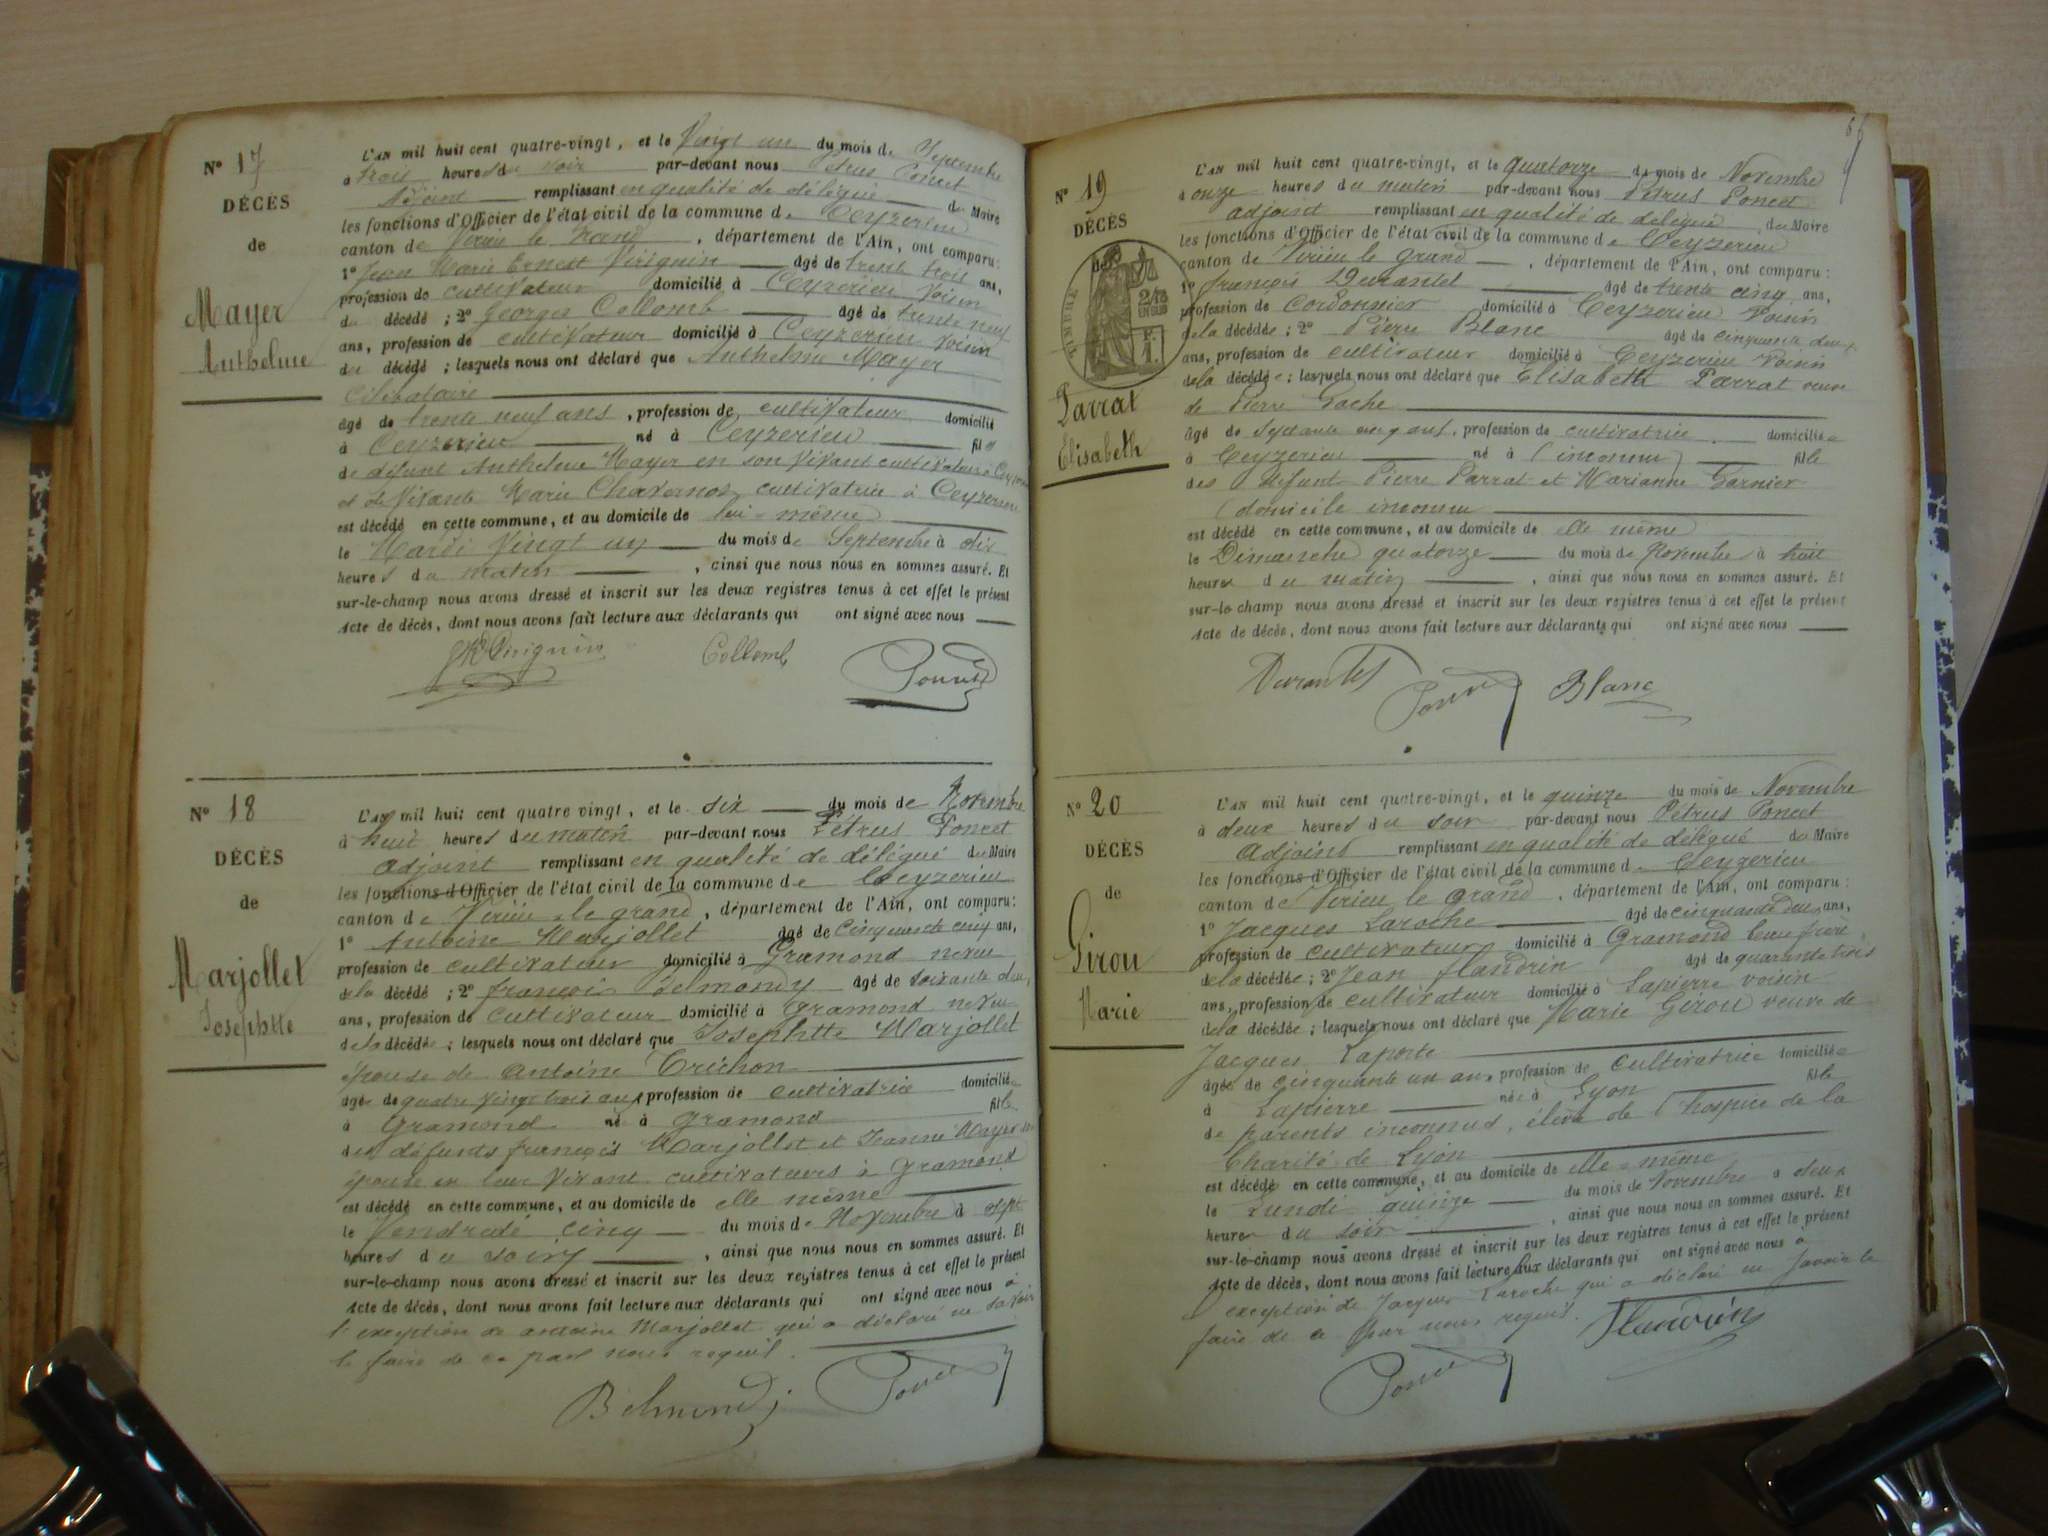 N° 17
DÉCÈS
de
Mayer
Anthelme
L'AN mil huit cent quatre-vingt, et le Vingt un du mois de Septembre
à trois heures du soir par-devant nous Pétrus Poncet
Adjoint remplissant en qualité de délégué du Maire
les fonctions d'Officier de l'état civil de la commune de Ceyzerieu
canton de Virieu le Grand, département de l'Ain, ont comparu:
1° Jean Marie Ernest Pirignin âgé de trente trois ans,
profession de cultivateur domicilié à Ceyzerieu voisin
du décédé ; 2° Georges Collomb âgé de trente neuf
ans, profession de cultivateur domicilié à Ceyzerieu voisin
du décédé ; lesquels nous ont déclaré que Anthelme Mayer
Célibataire
âgé de trente neuf ans, profession de cultivateur domicilié
à Ceyzerieu né à Ceyzerieu fils
de défunt Anthelme Mayer en son vivant cultivateur à Ceyzerieu
et de vivante Marie Chavernoz cultivatrice à Ceyzerieu
est décédé en cette commune, et au domicile de lui-même
le Mardi Vingt un du mois de Septembre à dix
heures du matin, ainsi que nous nous en sommes assuré. Et
sur-le-champ nous avons dressé et inscrit sur les deux registres tenus à cet effet le présent
Acte de décès, dont nous avons fait lecture aux déclarants qui ont signé avec nous
Collomb Poncet
N° 18
DÉCÈS
de
Marjollet
Josephtte
L'AN mil huit cent quatre vingt, et le six du mois de Novembre
à huit heures du matin par-devant nous Pétrus Poncet
adjoint remplissant en qualité de délégué du Maire
les fonctions d'Officier de l'état civil de la commune de Ceyzerieu
canton de Virieu-le-grand, département de l'Ain, ont comparu:
1° Antoine Marjollet âgé de cinquante cinq ans,
profession de cultivateur domicilié à Gramond neveu
de la décédé ; 2° françois Belmondy âgé de soixante deux
ans, profession de cultivateur domicilié à gramond neveu
de la décédé ; lesquels nous ont déclaré que Josephtte Marjollet
épouse de antoine Trichon
âgé de quatre vingt trois ans, profession de cultivatrice domicilié
à Gramond né à gramond fille
des défunts françois Marjollet et Jeanne Mayer son
épouse en leur vivant cultivateurs à gramond
est décédé en cette commune, et au domicile de elle même
le Vendredi cinq du mois de Novembre à sept
heures du soir, ainsi que nous nous en sommes assuré. Et
sur-le-champ nous avons dressé et inscrit sur les deux registres tenus à cet effet le présent
Acte de décès, dont nous avons fait lecture aux déclarants qui ont signé avec nous à
l'exception de antoine Marjollet qui a déclaré ne savoir
le faire de ce par nous requis.
Belmondy Poncet
N° 19
DÉCÈS
de
TIMBRE
2/10
EN SUS
F.
1.
Parrat
Elisabeth
L'AN mil huit cent quatre-vingt, et le quatorze du mois de Novembre
à onze heures du matin par-devant nous Pétrus Poncet
adjoint remplissant en qualité de délégué du Maire
les fonctions d'Officier de l'état civil de la commune de Ceyzerieu
canton de Virieu le grand, département de l'Ain, ont comparu:
1° françois Durantel âgé de trente cinq ans,
profession de cordonnier domicilié à Ceyzerieu voisin
de la décédée ; 2° Pierre Blanc âgé de cinquante deux
ans, profession de cultivateur domicilié à Ceyzerieu voisin
de la décédée ; lesquels nous ont déclaré que Elisabeth Parrat veuve
de Pierre Gache
âgé de septante cinq ans, profession de cultivatrice domiciliée
à Ceyzerieu né à (inconnu) fille
des défunts Pierre Parrat et Marianne Garnier
(domicile inconnu
est décédé en cette commune, et au domicile de elle même
le Dimanche quatorze du mois de Novembre à huit
heures du matin, ainsi que nous nous en sommes assuré. Et
sur-le-champ nous avons dressé et inscrit sur les deux registres tenus à cet effet le présent
Acte de décès, dont nous avons fait lecture aux déclarants qui ont signé avec nous
Durantel Poncet Blanc
N° 20
DÉCÈS
de
Girou
Marie
L'AN mil huit cent quatre-vingt, et le quinze du mois de Novembre
à deux heures du soir par-devant nous Pétrus Poncet
Adjoint remplissant en qualité de délégué du Maire
les fonctions d'Officier de l'état civil de la commune de Ceyzerieu
canton de Virieu le grand, département de l'Ain, ont comparu:
1° Jacques Laroche âgé de cinquante deux ans,
profession de cultivateur domicilié à Gramond beau frère
de la décédée ; 2° Jean flandrin âgé de quarante trois
ans, profession de cultivateur domicilié à Lapierre voisin
de la décédée ; lesquels nous ont déclaré que Marie Girou veuve de
Jacques Laporte
âgée de cinquante un ans, profession de cultivatrice domiciliée
à Lapierre née à Lyon fille
de parents inconnus, élève de l'hospice de la
Charité de Lyon
est décédé en cette commune, et au domicile de elle-même
le Lundi quinze du mois de Novembre à deux
heures du soir, ainsi que nous nous en sommes assuré. Et
sur-le-champ nous avons dressé et inscrit sur les deux registres tenus à cet effet le présent
Acte de décès, dont nous avons fait lecture aux déclarants qui ont signé avec nous à
l'exception de Jacques Laroche qui a déclaré ne savoir le
faire de ce par nous requis.
Flandrin
Poncet